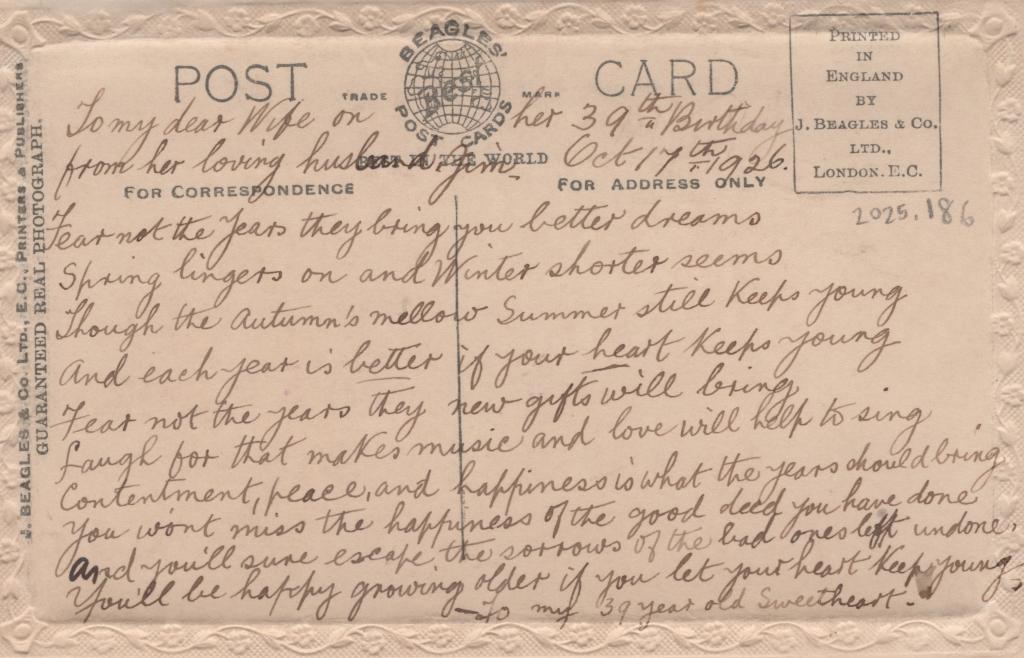 POST CARD
BEAGLES' BEST POST CARDS
TRADE MARK
BEST IN THE WORLD
FOR CORRESPONDENCE
FOR ADDRESS ONLY
PRINTED
IN
ENGLAND
BY
J. BEAGLES & Co.
LTD.,
LONDON. E.C.
2025.186
J. BEAGLES & Co. LTD., E.C., PRINTERS & PUBLISHERS.
GUARANTEED REAL PHOTOGRAPH.
To my dear Wife on her 39th Birthday
from her loving husband. Jim. Oct 17th 1926.
Fear not the Years they bring you better dreams
Spring lingers on and Winter shorter seems
Though the Autumn's mellow Summer still Keeps young
And each year is better if your heart Keeps young
Fear not the years they new gifts will bring
Laugh for that makes music and love will help to sing
Contentment, peace, and happiness is what the years should bring
You wont miss the happiness of the good deed you have done
and you'll sure escape the sorrows of the bad ones left undone.
You'll be happy growing older if you let your heart Keep young,
– To my 39 year old Sweetheart. –